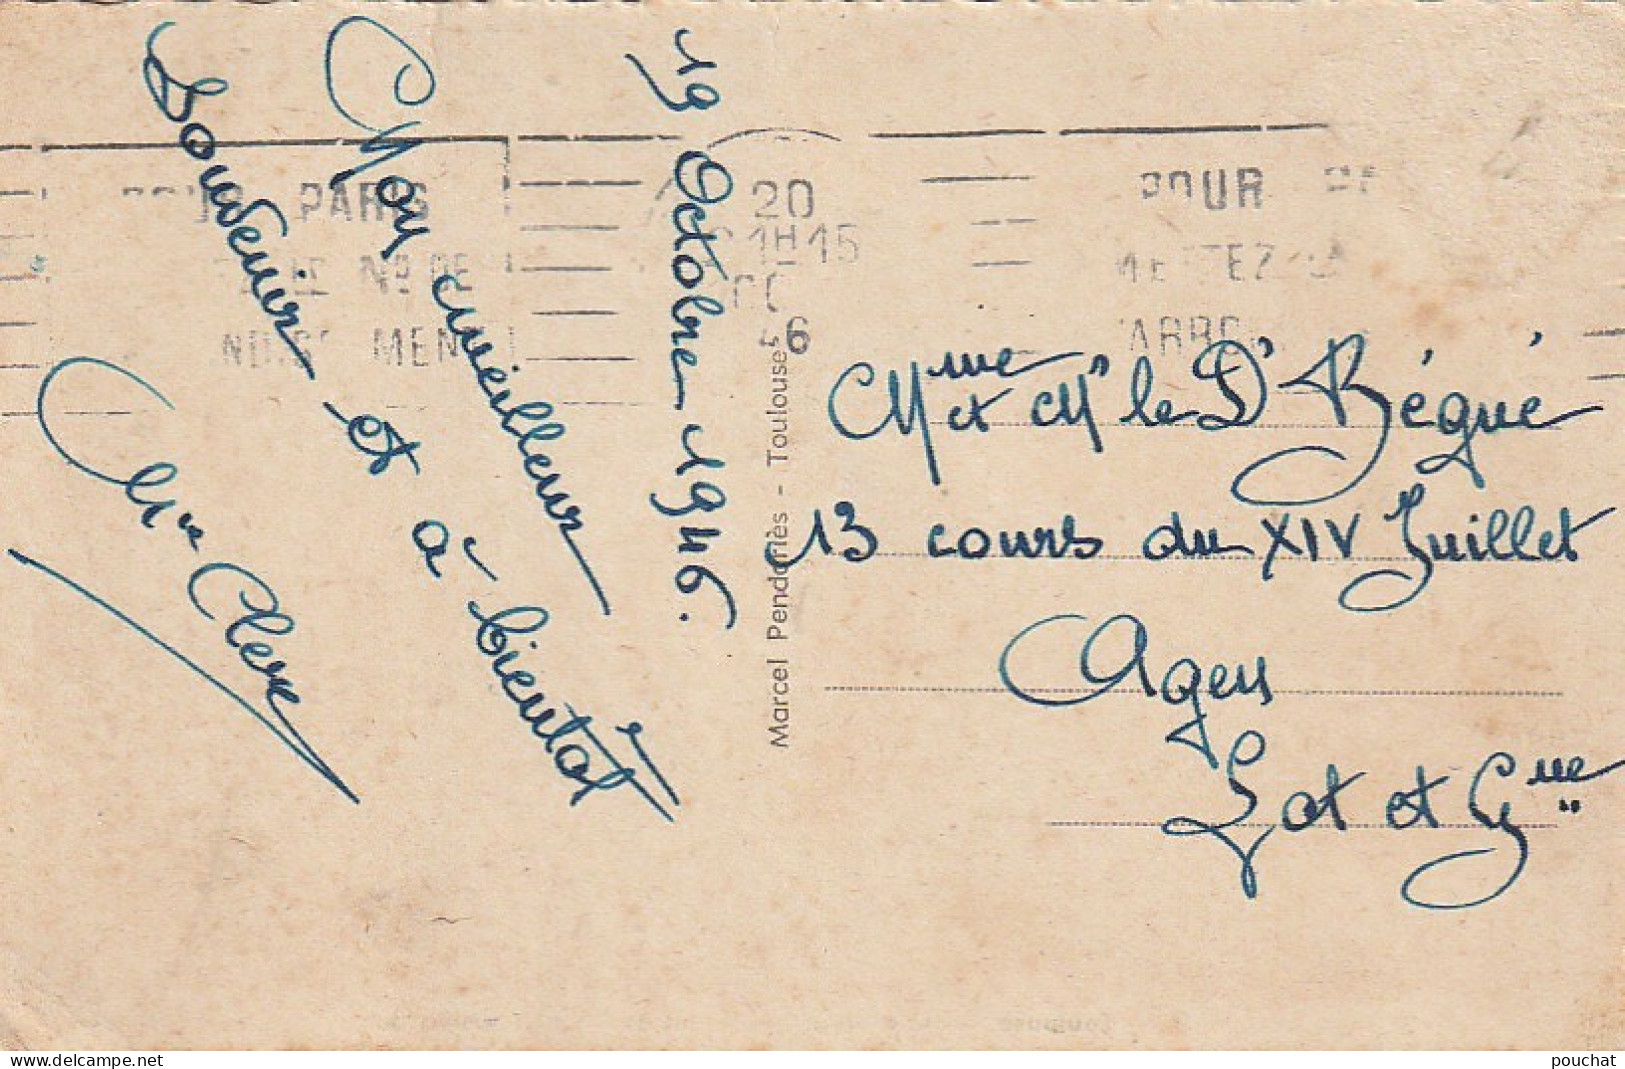 19 Octobre 1946.
Mon meilleur
Souvenir et à bientôt
Clerc
Marcel Pendariès - Toulouse
PARIS
N° DE
MEN
20
1H15
46
POUR
METTEZ
Mme et Mr le Dr Bégué
13 cours du XIV Juillet
Agen
Lot et Gne
delcampe.net
pouchat